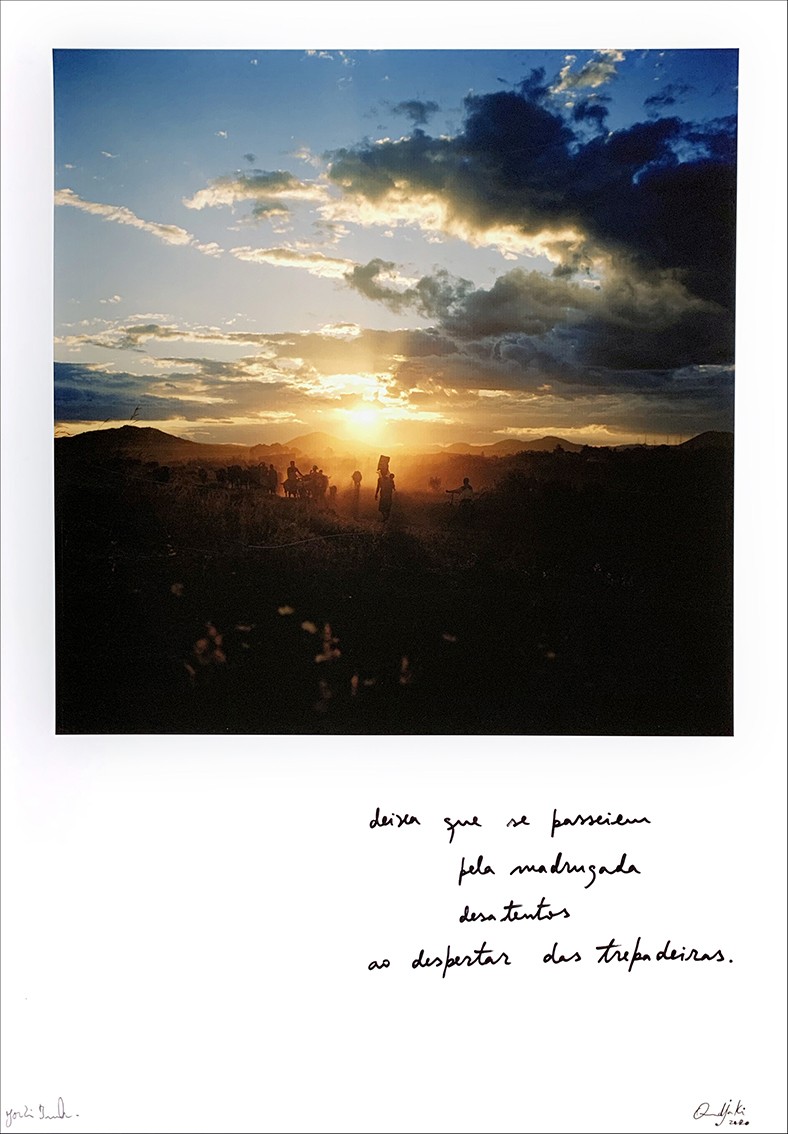 deixa que se passeiem
pela madrugada
desatentos
ao despertar das trepadeiras.
Ondjaki
2020